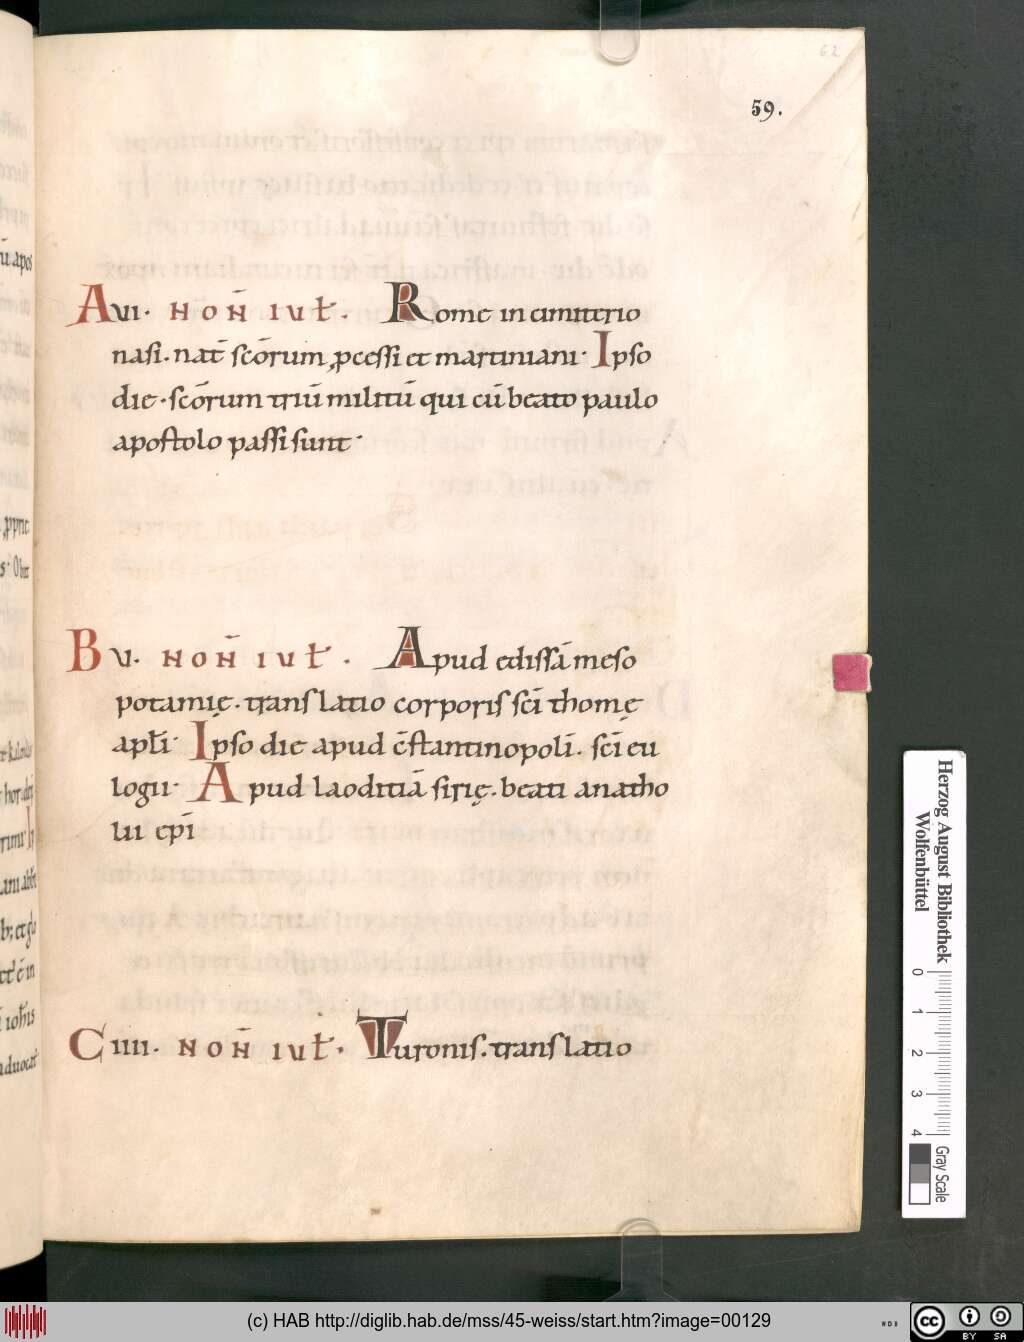 62
59.
A vi. NON̄ IUŁ. Rome in cimiterio
nasi. nat̄ sc̄orum ꝓcessi et martiniani. Ipso
die. sc̄orum triū militū qui cū beato paulo
apostolo passi sunt.
B v. NON̄ IUŁ. Apud edissā meso
potamię. translatio corporis sc̄i thomę
apłi. Ipso die apud c̄stantinopoli. sc̄i eu
logii. Apud laoditiā sirię. beati anatho
lii ep̄i
C iiii. NON̄ IUŁ. Turonis. translatio
Herzog August Bibliothek
Wolfenbüttel
0 1 2 3 4
Gray Scale
(c) HAB http://diglib.hab.de/mss/45-weiss/start.htm?image=00129
cc BY SA